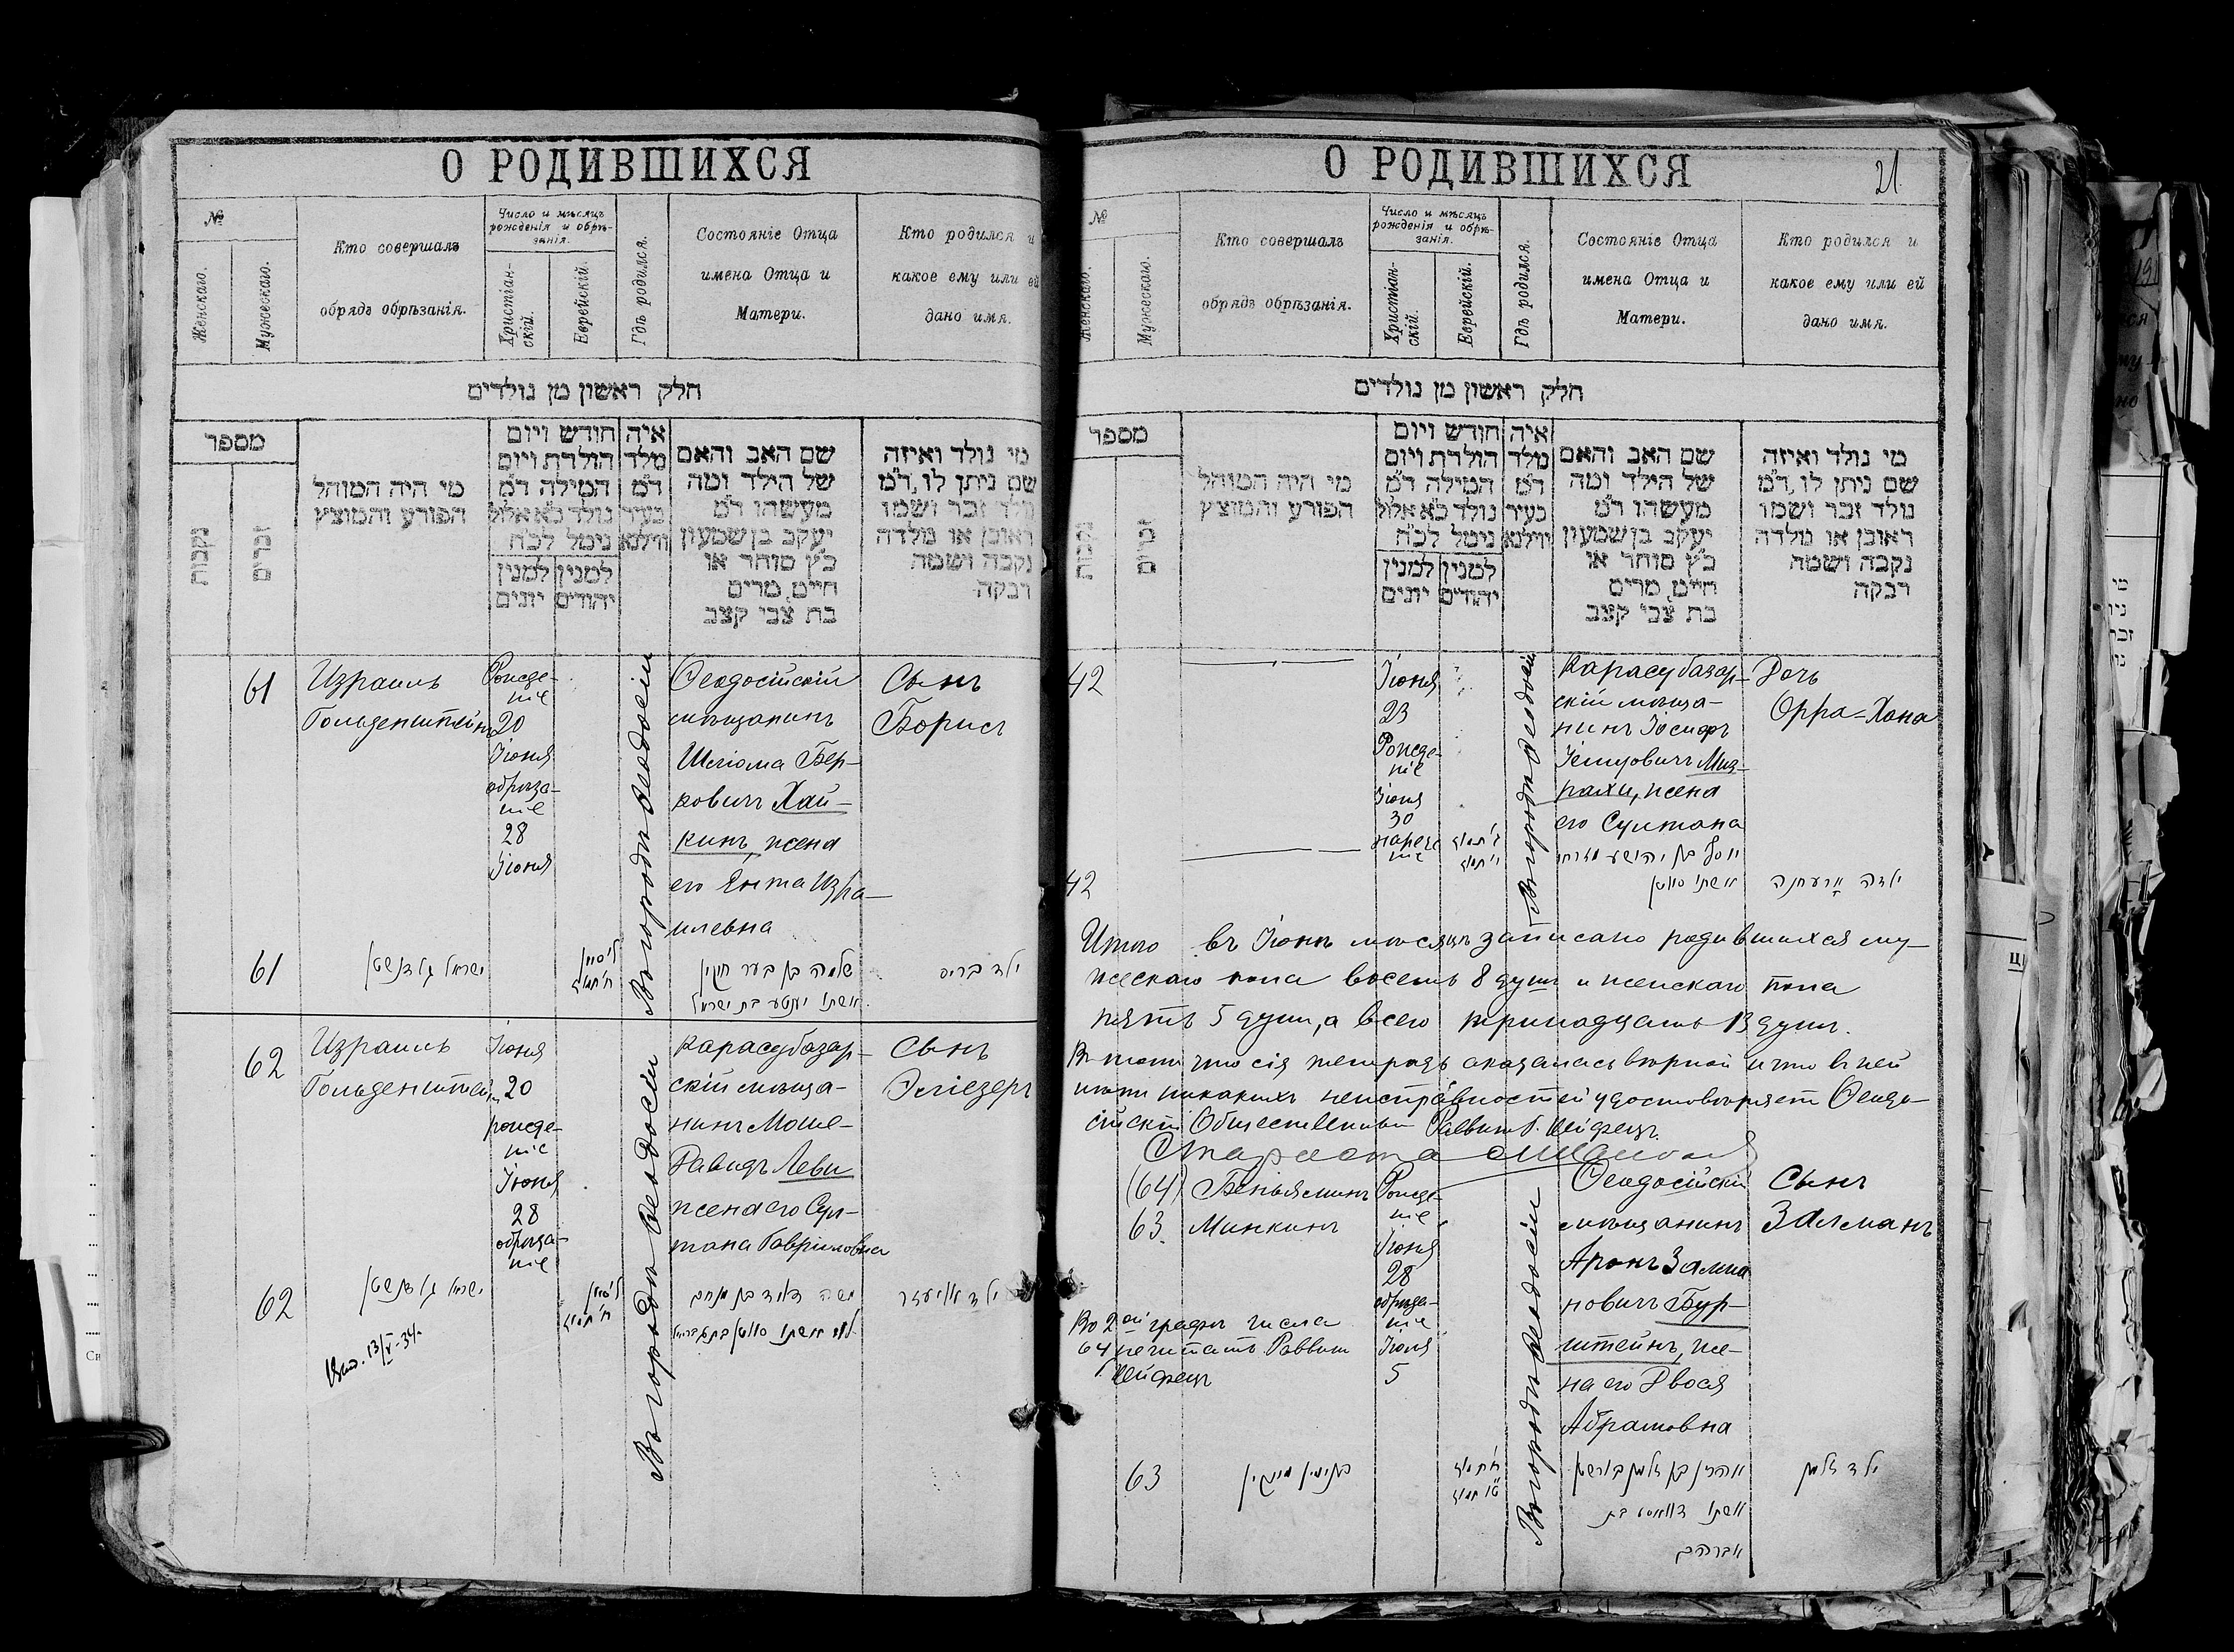 О РОДИВШИХСЯ
№
Женскаго.
Мужескаго.
Кто совершалъ
обрядъ обрѣзанія.
Число и мѣсяцъ
рожденія и обрѣ-
занія.
Христіан-
скій.
Еврейскій.
Гдѣ родился.
Состояніе Отца
имена Отца и
Матери.
Кто родился и
какое ему или ей
дано имя.
חלק ראשון מן נולדים
מספר
נקבות
זכרים
מי היה המוהל
הפורע והמוצץ
חודש ויום
הולדת ויום
המילה ד״מ
נולד כ״א אלול
נימל לכ״ח
למנין למנין
יהודים יונים
איה
מלד
ד״מ
בעיר
ווילנא
שם האב והאם
של הילד ומה
מעשהו ד״מ
יעקב בן שמעון
כ״ץ סוחר או
חיים, מרים
בת צבי קצב
מי נולד ואיזה
שם ניתן לו, ד״מ
נולד זכר ושמו
ראובן או נולדה
נקבה ושמה
רבקה
61
Израиль
Гольденштейнъ
Рожде-
ніе
20
Іюня
обрѣза-
ніе
28
Іюня
Въ городѣ Ѳеодосіи
Ѳеодосійскій
мѣщанинъ
Шліома Бер-
ковичъ Хай-
кинъ, жена
его Ента Изра-
илевна
Сынъ
Борисъ
61
ישראל גאלדנשטיין
ל׳ סיון
ח׳ תמוז
שלמה בן בער חייקין
אשתו יענטע בת ישראל
ילד בריס
62
Израиль
Гольденштейнъ
Іюня
20
рожде-
ніе
Іюня
28
обрѣза-
ніе
Въ городѣ Ѳеодосіи
Карасубазар-
скій мѣща-
нинъ Моше-
Давидъ Леви
жена его Сул-
тана Гавриловна
Сынъ
Эліезеръ
62
ישראל גאלדנשטיין
ל׳ סיון
ח׳ תמוז
משה דוד בן
לוי אשתו סולטן בת גבריאל
ילד אליעזר
13/V-34
О РОДИВШИХСЯ
21
№
Женскаго.
Мужескаго.
Кто совершалъ
обрядъ обрѣзанія.
Число и мѣсяцъ
рожденія и обрѣ-
занія.
Христіан-
скій.
Еврейскій.
Гдѣ родился.
Состояніе Отца
имена Отца и
Матери.
Кто родился и
какое ему или ей
дано имя.
חלק ראשון מן נולדים
מספר
נקבות
זכרים
מי היה המוהל
הפורע והמוצץ
חודש ויום
הולדת ויום
המילה ד״מ
נולד כ״א אלול
נימל לכ״ח
למנין למנין
יהודים יונים
איה
מלד
ד״מ
בעיר
ווילנא
שם האב והאם
של הילד ומה
מעשהו ד״מ
יעקב בן שמעון
כ״ץ סוחר או
חיים, מרים
בת צבי קצב
מי נולד ואיזה
שם ניתן לו, ד״מ
נולד זכר ושמו
ראובן או נולדה
נקבה ושמה
רבקה
42
Іюня
23
Рожде-
ніе
Іюня
30
нарече
ніе
Въ городѣ Ѳеодосіи
Карасубазар-
скій мѣща-
нинъ Іосифъ
Іешуовичъ Миз-
рахи, жена
его Султана
Дочь
Орра-Хана
42
ג׳ תמוז
י׳ תמוז
יוסף בן יהושע מזרחי
אשתו סולטן
ילדה אָרעחנה
Итого въ Іюнѣ мѣсяцѣ записано родившихся му-
жескаго пола восемь 8 душъ и женскаго пола
пять 5 душъ, а всего тринадцать 13 душъ.
Въ томъ что сія тетрадь оказалась вѣрной и что въ ней
нѣтъ никакихъ неисправностей удостовѣряетъ Ѳеодо-
сійскій Общественный Раввинъ Г. Вейферцъ
Староста
(64)
63.
Беньяминъ
Минкинъ
Рожде-
ніе
Іюня
28
обрѣза-
ніе
Іюля
5
Въ городѣ Ѳеодосіи
Ѳеодосійскій
мѣщанинъ
Аронъ Залма
новичъ Бур-
штейнъ, же-
на его Двося
Абрамовна
Сынъ
Залманъ
Во 2ой графѣ числа
64 не читать Раввинъ
63
בנימין מינקין
ח׳ תמוז
ט״ו תמוז
אהרן בן זלמן בורשטיין
אשתו דוואסע בת
אברהם
ילד זלמן